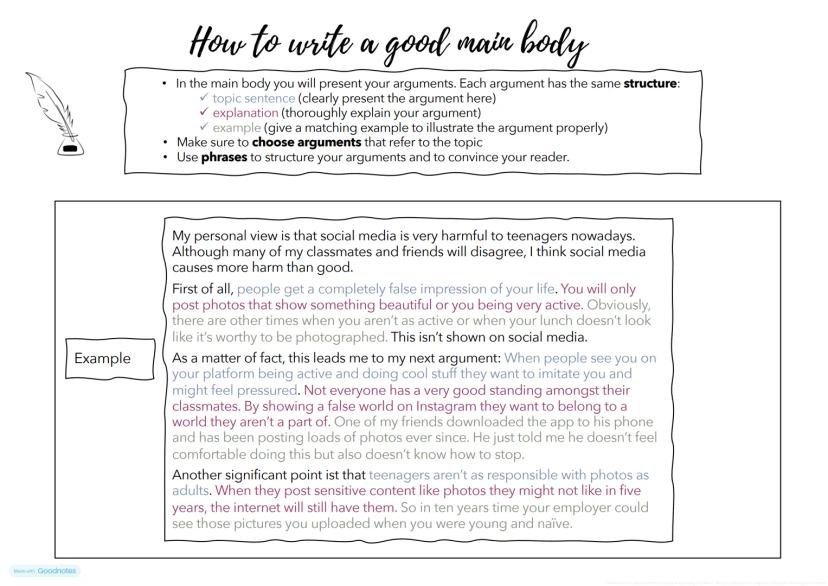 How to write a good main body
• In the main body you will present your arguments. Each argument has the same structure:
✓ topic sentence (clearly present the argument here)
✓ explanation (thoroughly explain your argument)
✓ example (give a matching example to illustrate the argument properly)
• Make sure to choose arguments that refer to the topic
• Use phrases to structure your arguments and to convince your reader.
Example
My personal view is that social media is very harmful to teenagers nowadays.
Although many of my classmates and friends will disagree, I think social media
causes more harm than good.
First of all, people get a completely false impression of your life. You will only
post photos that show something beautiful or you being very active. Obviously,
there are other times when you aren't as active or when your lunch doesn't look
like it's worthy to be photographed. This isn't shown on social media.
As a matter of fact, this leads me to my next argument: When people see you on
your platform being active and doing cool stuff they want to imitate you and
might feel pressured. Not everyone has a very good standing amongst their
classmates. By showing a false world on Instagram they want to belong to a
world they aren't a part of. One of my friends downloaded the app to his phone
and has been posting loads of photos ever since. He just told me he doesn't feel
comfortable doing this but also doesn't know how to stop.
Another significant point ist that teenagers aren't as responsible with photos as
adults. When they post sensitive content like photos they might not like in five
years, the internet will still have them. So in ten years time your employer could
see those pictures you uploaded when you were young and naïve.
Made with Goodnotes